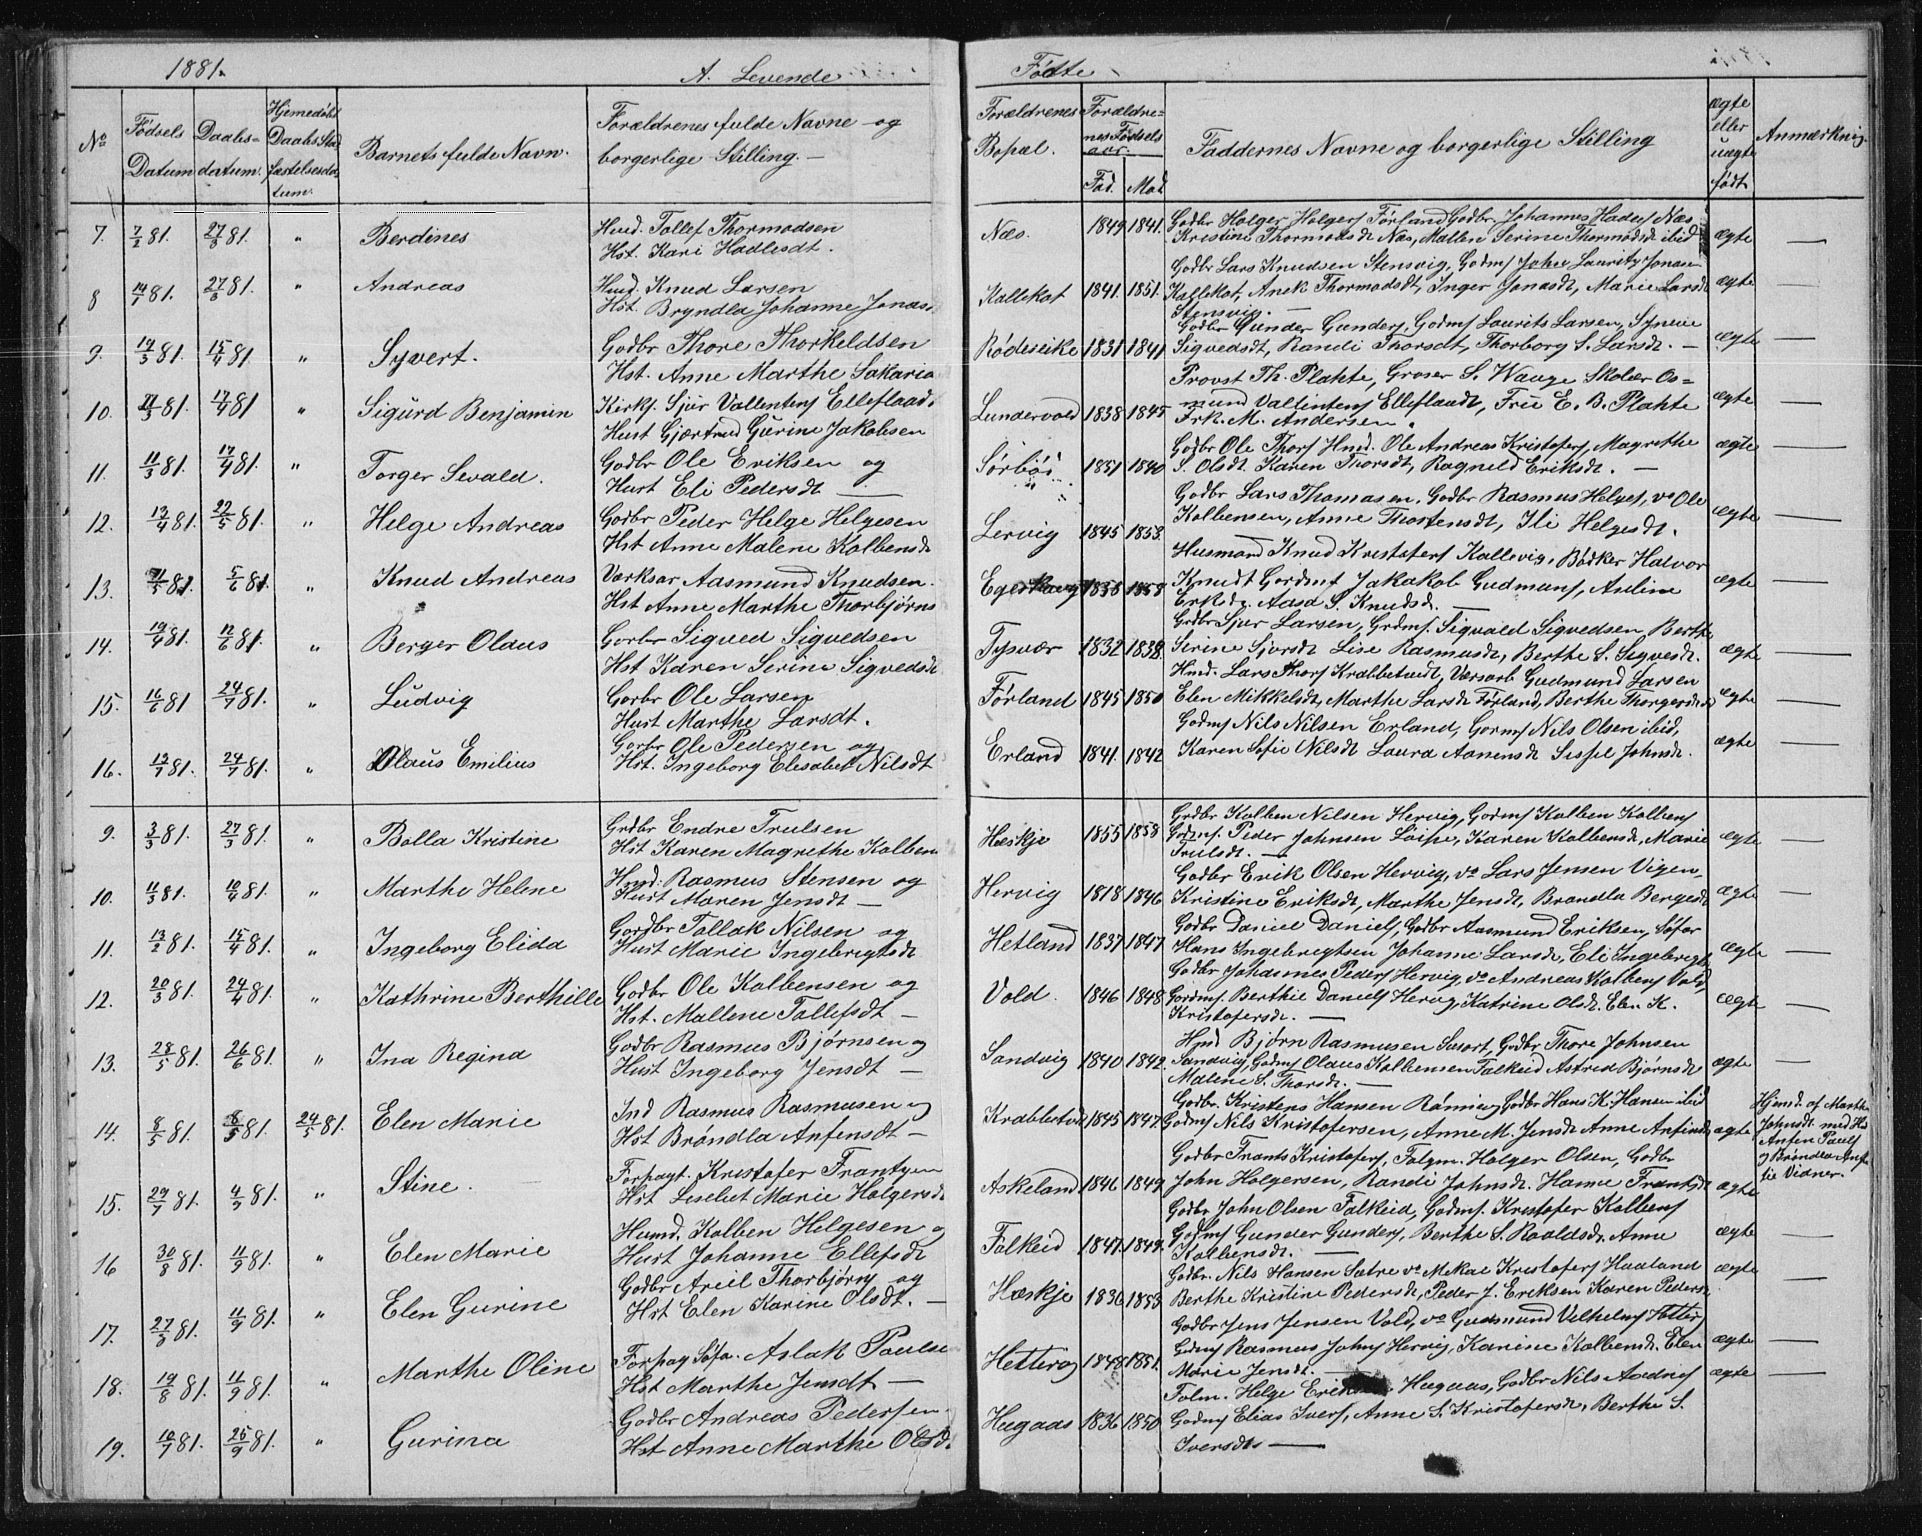 1881. A. Levende Fødte
No Fødsels Datum Daabsdatum. Hjemedøbt Daabs Stadfæstelsesdatum. Barnets fulde Navn. Forældrenes fulde Navne og borgerlige Stilling. Forældrenes Bopæl. Forældrenes Fødselsaar. Fad. Mod. Faddernes Navne og borgerlige Stilling ægte eller uægte født Anmærkning
7. 7/2 81. 27/3 81. " Berdines
Hmd. Tollef Thormodsen
Hst. Kari Hadlesdt.
Næs. 1849 1841.
Godbr Holger Holgers Førland Godbr. Johannes Hades Næs
Kristine Thormodsdt Næs, Mallen Serine Thormodsdt ibid
ægte —
8 14/1 81. 27/3 81. " Andreas
Hmd. Knud Larsen
Hst. Bryndla Johanne Jonas.
Kallekot 1841. 1851.
Godbr Lars Knudsen Stensvig, Godmf John Lauritz Jonasen
Kallekot, Anek Thormodsdt, Inger Jonasdt, Marie Larsdt
Stensvig. —
ægte —
9. 19/3 81. 15/4 81. " Syvert.
Godbr Thore Thorkeldsen
Hst. Anne Marthe Sakaria
Rødeseike 1831 1841
Godbr Gunder Gunders, Godmf Laurits Larsen, Synnie
Sigvedsdt, Randi Thorsdt, Thorborg S. Larsdt. —
ægte —
10. 21/3 81. 17/4 81 " Sigurd Benjamin
Kirks. Sjur Vallentens Elleflaadt
Hust Gjærtrud Gurine Jakobsen
Lundervold 1838 1845
Provst Th. Plahte, Groser S. Waage Skolær Os=
mund Vallintens Elleflaadt, Frue E. B. Plahte
Frk. M. Andersen.
ægte —
11. 11/3 81. 17/4 81. " Torger Sevald.
Godbr Ole Eriksen og
Hust Eli Pedersdt —
Sørbø 1851 1840
Godbr Ole Thors Hmd. Ole Andreas Kristofers, Magrethe
S. Olsdt Karen Thorsdt, Ragneld Eriksdt. —
ægte —
12. 13/4 81. 22/5 81. " Helge Andreas
Godbr Peder Helge Helgesen
Hst Anne Malene Kolbensdt
Lervig 1845 1853.
Godbr Lars Thomasen, Godbr Rasmus Helges, vo Ole
Kolbensen, Anne Thostensdt, Ili Helgesdt.
ægte —
13. 81. 5/6 81. " Knud Andreas
Værksar Aasmund Knudsen.
Hst Anne Marthe Thorbjørns
1858
Husmand Knud Kristofers Kallevig, Bødker Halvor
Knudt Gordmf Jakakob Gudmans, Anline
Aasa S. Knudsdt. —
ægte —
14. 19/4 81. 12/6 81. " Berger Olaus
Gorbr Sigved Sigvedsen
Hst Karen Serine Sigvedsdt
Tysvær 1832 1838.
Grdbr Sjur Larsen, Grdmf. Sigvald Sigvedsen Berthe
Serine Sjursdt Lise Rasmusdt, Berthe S. Sigvesdt.
ægte —
15. 16/6 81 24/7 81. " Ludvig
Gorbr Ole Larsen
Hust Marthe Larsdt.
Førland 1845 1850
Hmd. Lars Thors Krabbetveit, Versarb Gudmund Larsen
Elen Mikkelsdt, Marthe Larsdt Førland, Berthe Thorgersdt
ægte —
16. 13/7 81. 24/7 81. " Olaus Emilius
Gorbr Ole Pedersen og
Hst. Ingeborg Elesabet Nilsdt
Erland 1841. 1842
Godmf Nils Nilsen Erland, Gormf Nils Olsen ibid,
Karen Sofie Nilsdt Laura Aanensdt Sissel Johnsdt.
ægte —
9. 3/3 81. 27/3 81. " Bolla Kristine
Grdbr Endre Trulsen
Hst Karen Magrethe Kolben
Heskje 1855 1858
Grdbr Kolben Nilsen Hervig, Godmf Kolben Kolbens
Godmf. Peder Johnsen Loipe, Karen Kolbensdt, Marie
Trulsdt. —
ægte —
10. 11/3 81. 10/4 81. " Marthe Helene
Hmd. Rasmus Stensen og
Hust Maren Jensdt —
Hervig 1818 1846
Godbr Erik Olsen Hervig, vo Lars Jensen Vigen,
Kristine Eriksdt, Marthe Jensdt, Brandla Bergesdt
ægte —
11. 13/2 81. 15/4 81. " Ingeborg Elida
Gordbr Tollak Nilsen og
Hust Marie Ingebrigtsdt
Hetland 1837 1847.
Godbr Daniel Daniels, Godbr Aasmund Eriksen, Sofar
Hans Ingebregtsen Johanne Larsdt, Eli Ingebregtsdt
ægte —
12. 20/3 81. 24/4 81. " Kathrine Berthille
Godbr Ole Kolbensen og
Hst. Mallene Tollefsdt —
Vold. 1846 1848.
Godbr Johannes Peders Hervig, vo Andreas Kolbens Vold,
Gordmf. Berthie Daniels Hervig, Katrine Olsdt. Elen K.
Kristofersdt. —
ægte —
13. 28/5 81. 26/6 81. " Ina Regina
Godbr Rasmus Bjørnsen og
Hust Ingeborg Jensdt —
Sandvig 1840 1842.
Hmd Bjørn Rasmusen Susort, Godbr Thore Johnsen
Sandvig, Godmf Olaus Kolbensen Falkeid Astred Bjørnsdt
Malene S. Thorsdt. —
ægte —
14. 8/5 81. 8/5 81. 24/5 81. Elen Marie
Ind Rasmus Rasmusen og
Hst Brøndla Anfensdt —
Krabbetvedt 1845 1847.
Godbr. Kristens Hansen Rønnevig Godbr Hans K. Hansen ibid
Godmf Nils Kristofersen, Anne M. Jensdt Anne Anfindsdt
ægte
Hjemd. af Marthe
Johnsdt. med Hs
Anfen Pauls
og Brøndea Anf
tie Vidner.
15. 29/7 81. 4/9 81. " Stine. —
Forpagt. Kristofer Frantzen
Hst Liselet Marie Holgersdt
Askeland 1846 1849
Godbr Frants Kristofers, Folgm. Holger Olsen, Godbr
John Holgersen, Randi Johnsdt. Hanne Frantzdt
ægte
16 30/8 81. 11/9 81. " Elen Marie
Husmd. Kolben Helgesen og
Hust Johanne Ellefsdt
Falkeid 1847. 1849.
Godbr John Olsen Falkeid, Godmf. Kristofer Kolbens
Godmf Gunder Gunders, Berthe S. Roaldsdt. Anne
Kolbensdt. —
ægte —
17. 27/8 81. 11/9 81. " Elen Gurine
Godbr Areil Thorbjørns og
Hst Elen Karine Olsdt. —
Hæskje 1836 1853
Godbr. Nils Hansen Satre vo Mikae Kristofers Haaland
Berthe Kristine Pedersdt, Peder J. Eriksen Karen Peders
ægte —
18. 19/8 81. 11/9 81. " Marthe Oline
Forpag Søfa. Aslak Paulse
Hst Marthe Jensdt —
Hettevog 1848 1851.
Godbr Jens Jensen Vold, vo Gudmund Velhelms
Godmf Rasmus Johns Hervig, Karine Kolbensdt. Elen
Marie Jensdt.
ægte —
19. 10/7 81. 25/9 81. " Gurina
Godbr Andreas Pedersen
Hst Anne Marthe Olsdt.
Hagaas 1836 1850
Folm. Helge Hagaas, Godbr Nils Aadnes
Godmf Elias Ivers, Anne S. Kristofersdt, Berthe S.
Iversdt. —
ægte —